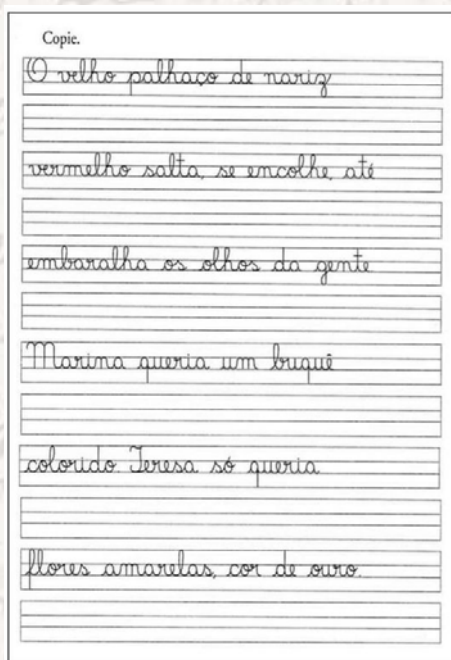 Copie.
O velho palhaço de nariz
vermelho salta, se encolhe, até
embaralha os olhos da gente
Marina queria um buquê
colorido. Teresa só queria
flores amarelas, cor de ouro.